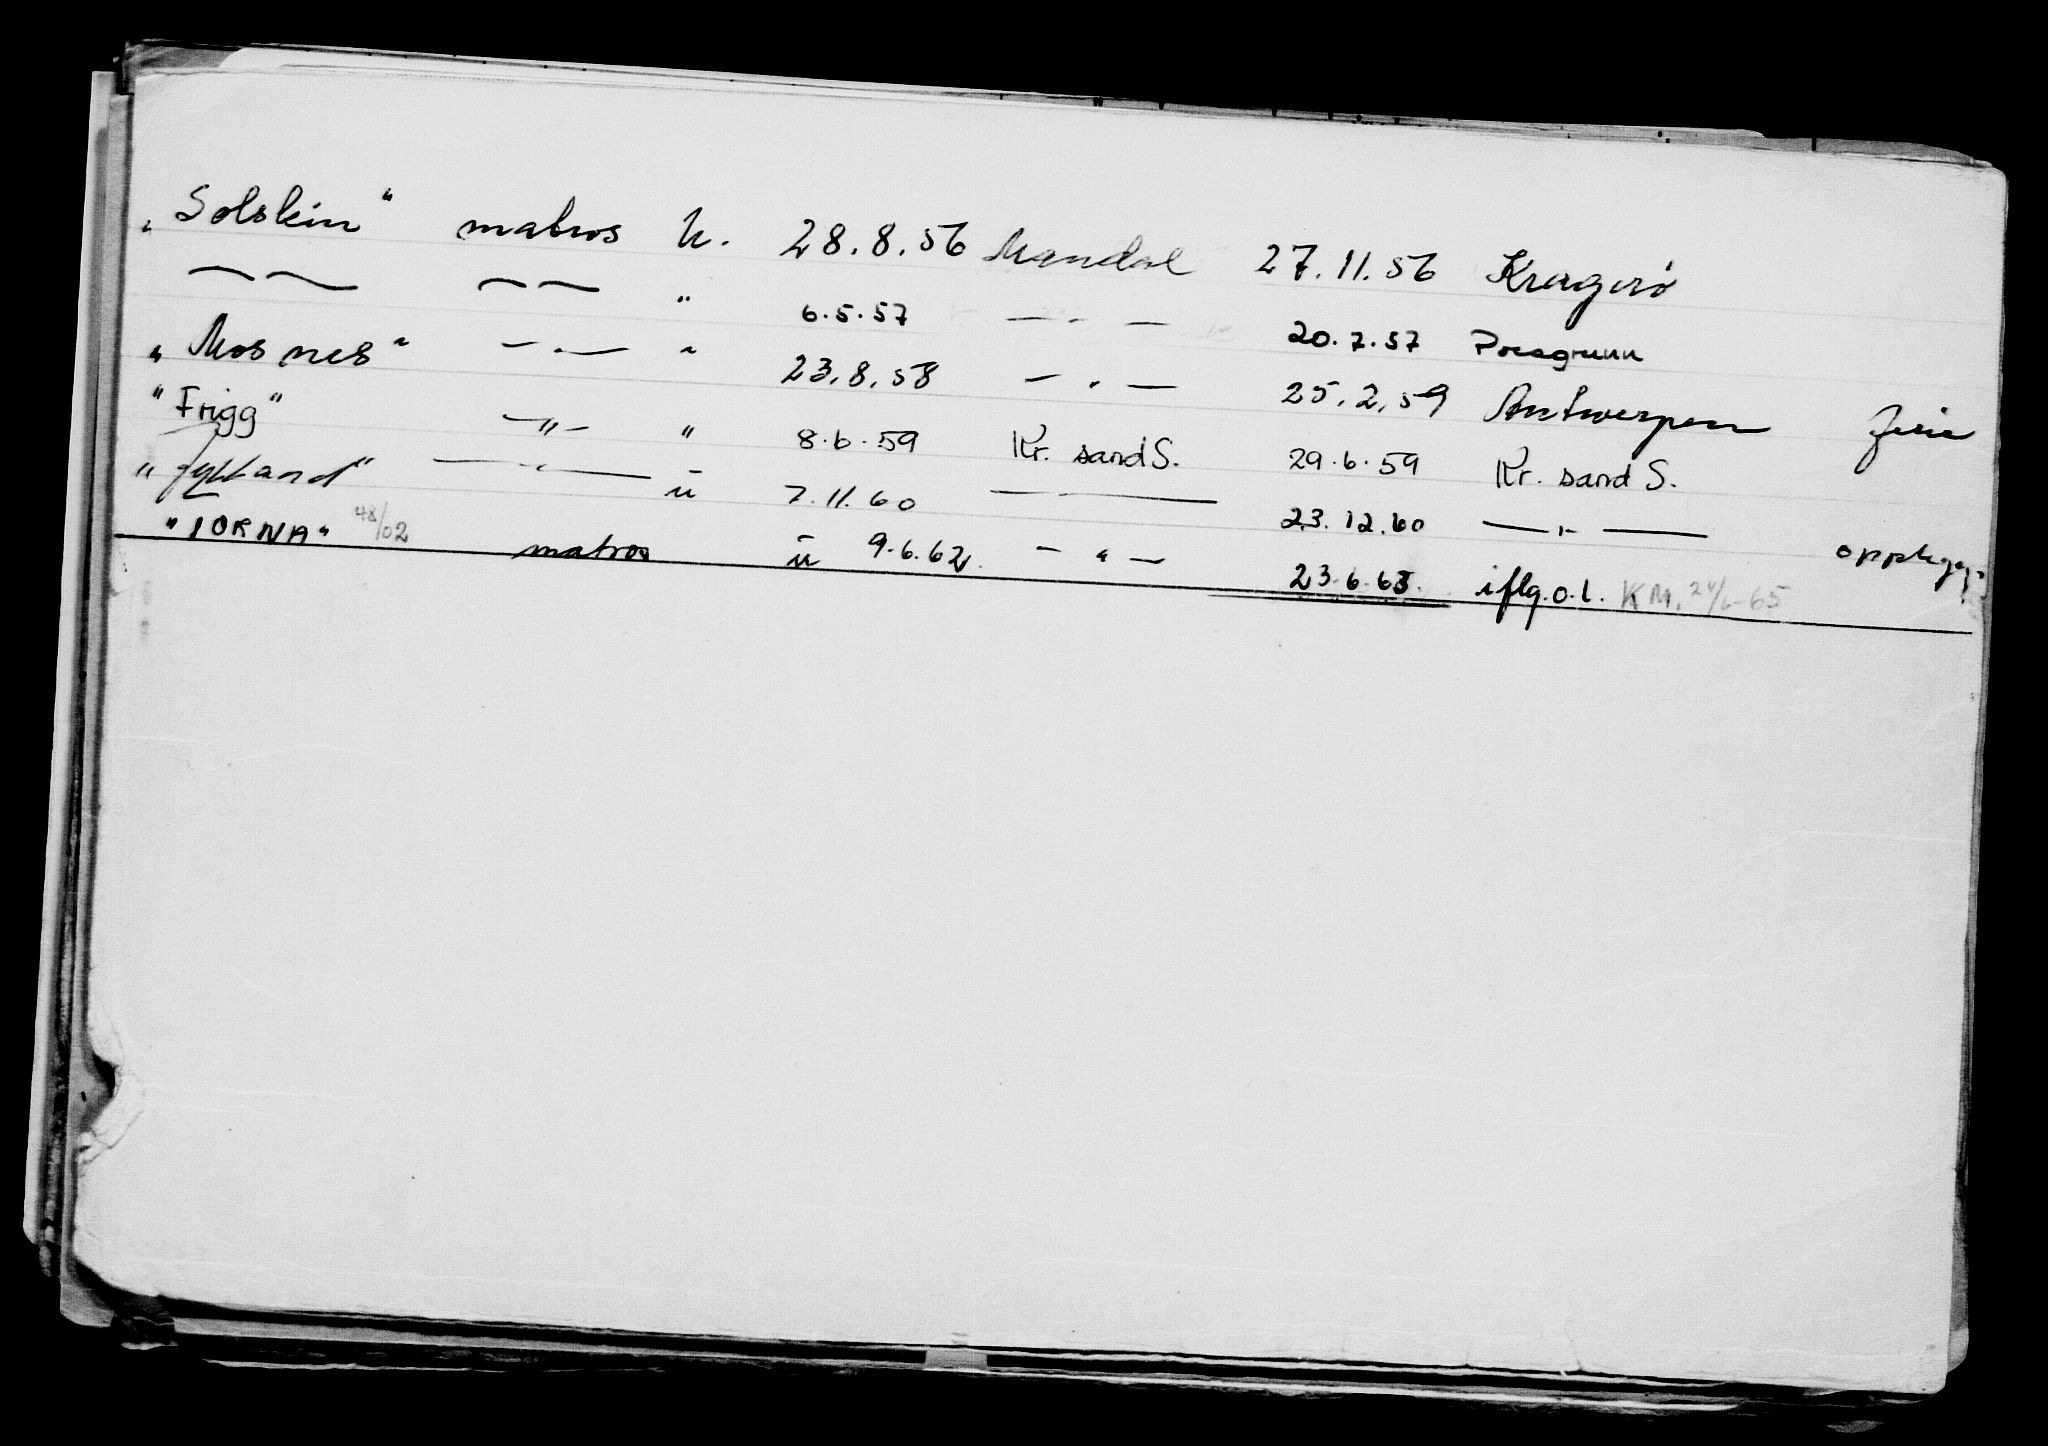 „Solskin" matros U. 28.8.56 Mandal 27.11.56 Kragerø
— — — — " 6.5.57 — " — 20.7.57 Porsgrunn
„Mosnes" — " — " 23.8.58 — " — 25.2.59 Antwerpen ferie
"Frigg" — " — " 8.6.59 Kr. sand S. 29.6.59 Kr. sand S.
"Jylland" — " — u 7.11.60 — 23.12.60 — " — opplegg.
"TORNA" 48/02 matros u 9.6.62. — " — 23.6.63. iflg. o.l. KM.